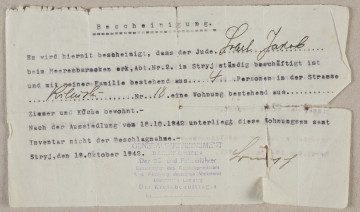 Bescheinigung.
Es wird hiermit bescheinigt, dass der Jude Jakob
beim Heeresbaracken Abt.Nr.2. in Stryj ständig beschäftigt ist
und mit seiner Familie bestehend aus 4 Personen in der Strasse
Nr. 10 eine Wohnung bestehend aus
Zimmer und Küche bewohnt.-
Nach der Aussiedlung vom 18.10.1942 unterliegt diese Wohnung samt
Inventar nicht der Beschlagnahme.-
Stryj, den 19.Oktober 1942.
Der SS- und Polizeiführer